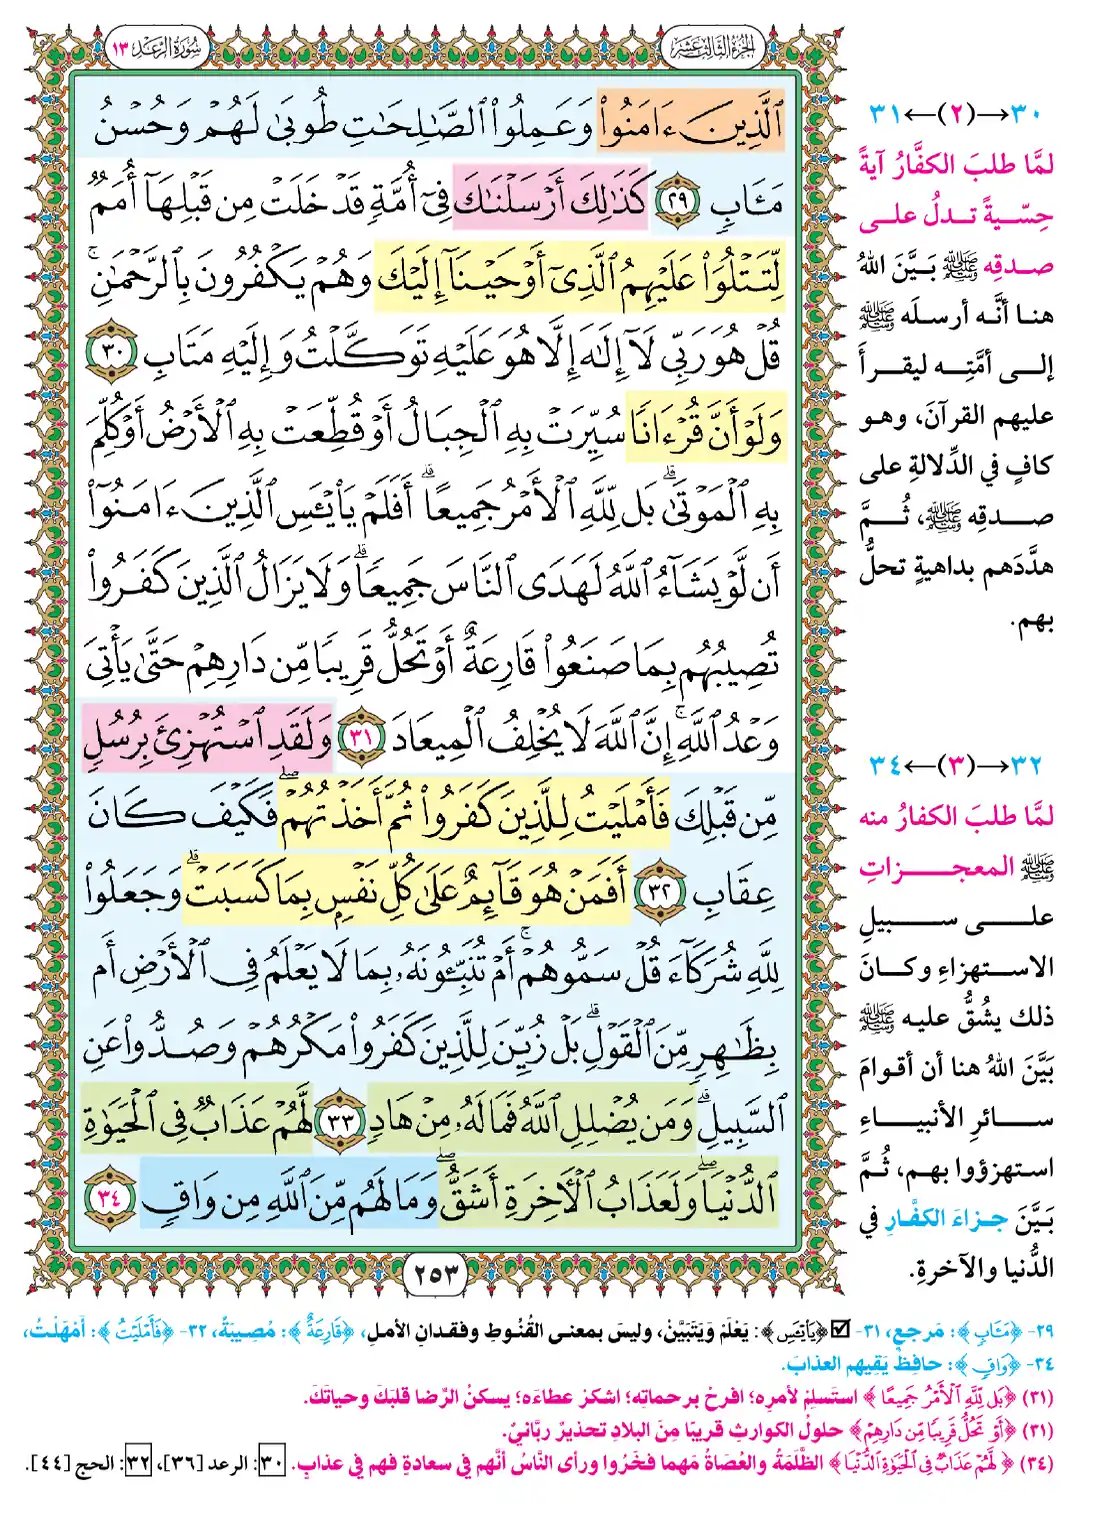 الجزء الثالث عشر
سورة الرعد ١٣
ٱلَّذِينَ ءَامَنُوا۟ وَعَمِلُوا۟ ٱلصَّـٰلِحَـٰتِ طُوبَىٰ لَهُمْ وَحُسْنُ
مَـَٔابٍ ٢٩ كَذَٰلِكَ أَرْسَلْنَـٰكَ فِىٓ أُمَّةٍ قَدْ خَلَتْ مِن قَبْلِهَآ أُمَمٌ
لِّتَتْلُوَا۟ عَلَيْهِمُ ٱلَّذِىٓ أَوْحَيْنَآ إِلَيْكَ وَهُمْ يَكْفُرُونَ بِٱلرَّحْمَـٰنِ ۚ
قُلْ هُوَ رَبِّى لَآ إِلَـٰهَ إِلَّا هُوَ عَلَيْهِ تَوَكَّلْتُ وَإِلَيْهِ مَتَابِ ٣٠
وَلَوْ أَنَّ قُرْءَانًا سُيِّرَتْ بِهِ ٱلْجِبَالُ أَوْ قُطِّعَتْ بِهِ ٱلْأَرْضُ أَوْ كُلِّمَ
بِهِ ٱلْمَوْتَىٰ ۗ بَل لِّلَّهِ ٱلْأَمْرُ جَمِيعًا ۗ أَفَلَمْ يَا۟يْـَٔسِ ٱلَّذِينَ ءَامَنُوٓا۟
أَن لَّوْ يَشَآءُ ٱللَّهُ لَهَدَى ٱلنَّاسَ جَمِيعًا ۗ وَلَا يَزَالُ ٱلَّذِينَ كَفَرُوا۟
تُصِيبُهُم بِمَا صَنَعُوا۟ قَارِعَةٌ أَوْ تَحُلُّ قَرِيبًا مِّن دَارِهِمْ حَتَّىٰ يَأْتِىَ
وَعْدُ ٱللَّهِ ۚ إِنَّ ٱللَّهَ لَا يُخْلِفُ ٱلْمِيعَادَ ٣١ وَلَقَدِ ٱسْتُهْزِئَ بِرُسُلٍ
مِّن قَبْلِكَ فَأَمْلَيْتُ لِلَّذِينَ كَفَرُوا۟ ثُمَّ أَخَذْتُهُمْ ۖ فَكَيْفَ كَانَ
عِقَابِ ٣٢ أَفَمَنْ هُوَ قَآئِمٌ عَلَىٰ كُلِّ نَفْسٍۭ بِمَا كَسَبَتْ ۗ وَجَعَلُوا۟
لِلَّهِ شُرَكَآءَ قُلْ سَمُّوهُمْ ۚ أَمْ تُنَبِّـُٔونَهُۥ بِمَا لَا يَعْلَمُ فِى ٱلْأَرْضِ أَم
بِظَـٰهِرٍ مِّنَ ٱلْقَوْلِ ۗ بَلْ زُيِّنَ لِلَّذِينَ كَفَرُوا۟ مَكْرُهُمْ وَصُدُّوا۟ عَنِ
ٱلسَّبِيلِ ۗ وَمَن يُضْلِلِ ٱللَّهُ فَمَا لَهُۥ مِنْ هَادٍ ٣٣ لَّهُمْ عَذَابٌ فِى ٱلْحَيَوٰةِ
ٱلدُّنْيَا ۖ وَلَعَذَابُ ٱلْـَٔاخِرَةِ أَشَقُّ ۖ وَمَا لَهُم مِّنَ ٱللَّهِ مِن وَاقٍ ٣٤
٢٥٣
٣٠→(٢)←٣١
لمَّا طلبَ الكفَّارُ آيةً
حِسّيةً تدلُ على
صدقِه ﷺ بَيَّنَ اللهُ
هنا أنَّه أرسلَه ﷺ
إلى أمَّتِه ليقرأَ
عليهم القرآنَ، وهو
كافٍ في الدِّلالةِ على
صدقِه ﷺ، ثُمَّ
هدَّدَهم بداهيةٍ تحلُّ
بهم.
٣٢→(٣)←٣٤
لمَّا طلبَ الكفارُ منه
ﷺ المعجزاتِ
على سبيلِ
الاستهزاءِ وكانَ
ذلك يشُقُّ عليه ﷺ
بَيَّنَ اللهُ هنا أن أقوامَ
سائرِ الأنبياءِ
استهزؤوا بهم، ثُمَّ
بَيَّنَ جزاءَ الكفَّارِ في
الدُّنيا والآخرةِ.
٢٩- ﴿مَـَٔابٍ﴾: مَرجعٍ، ٣١- ☑ ﴿يَا۟يْـَٔسِ﴾: يَعْلَمْ وَيَتَبَيَّنْ، وليسَ بمعنى القُنُوطِ وفقدانِ الأملِ، ﴿قَارِعَةٌ﴾: مُصِيبَةٌ، ٣٢- ﴿فَأَمْلَيْتُ﴾: أَمْهَلْتُ،
٣٤- ﴿وَاقٍ﴾: حافِظٍ يَقِيهِم العذابَ.
(٣١) ﴿بَل لِّلَّهِ ٱلْأَمْرُ جَمِيعًا﴾ استَسلِمْ لأمرِه؛ افرحْ برحماتِه؛ اشكرْ عطاءَه؛ يسكنُ الرِّضا قلبَكَ وحياتَكَ.
(٣١) ﴿أَوْ تَحُلُّ قَرِيبًا مِّن دَارِهِمْ﴾ حلولُ الكوارثِ قريبًا مِنَ البلادِ تحذيرٌ ربَّانيٌّ.
(٣٤) ﴿لَّهُمْ عَذَابٌ فِى ٱلْحَيَوٰةِ ٱلدُّنْيَا﴾ الظَّلَمَةُ والعُصَاةُ مَهما فَخَرُوا ورأى النَّاسُ أنَّهم في سعادةٍ فهم في عذابٍ. ٣٠: الرعد [٣٦]، ٣٢: الحج [٤٤].